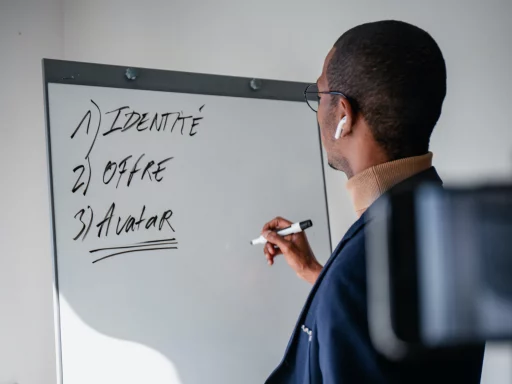 1) IDENTITÉ
2) OFFRE
3) Avatar